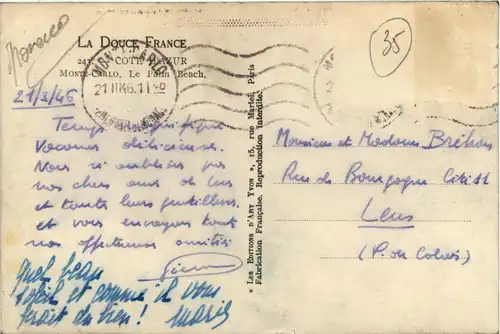 Monaco
35
LA DOUCE FRANCE
243. CÔTE D'AZUR
MONTE-CARLO, Le Palm Beach.
21 III 46. 11
21/3/46
Temps magnifique
Vacances délicieuses.
Nous n'oublions pas
nos chers amis de Lens
et toute leur gentillesse
et vous envoyons toute
nos affectueuses amitiés
Pierre
Quel beau
soleil et comme il vous
ferait du bien! Marie
« LES EDITIONS D'ART YVON », 15, rue Martel, Paris
Fabrication Française. Reproduction interdite.
Monsieur et Madame
Rue de Bourgogne Cité 11
Lens
(P. de Calais)